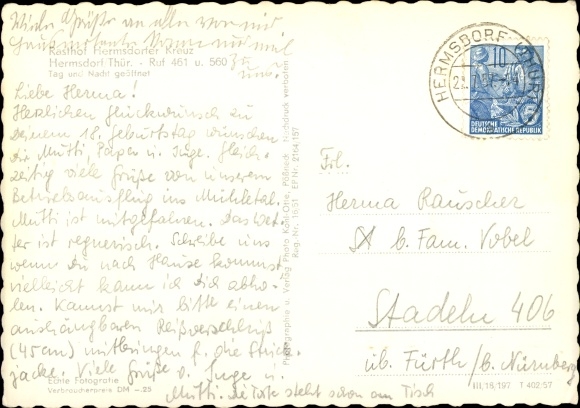 Viele Grüße an alle von mir
Gasthof Hermsdorfer Kreuz
Hermsdorf/Thür. - Ruf 461 u. 560
Tag und Nacht geöffnet
Liebe Herma!
Herzlichen Glückwunsch zu
deinem 18. Geburtstag wünschen
dir Mutti, Papa u. Inge. Gleich-
zeitig viele Grüße von unserem
Betriebsausflug ins Mühltal.
Mutti ist mitgefahren. Das Wet-
ter ist regnerisch. Schreibe uns
wenn du nach Hause kommst
vielleicht kann ich dich abho-
len. Kannst mir bitte einen
aushängbaren Reißverschluß
(45cm) mitbringen f. die Strick-
jacke. Viele Grüße v. Inge u.
Mutti. die Torte steht schon am Tisch
Echte Fotografie
Verbraucherpreis DM -.25
Photographie u. Verlag Photo König Ohle, Pößneck, Nachdruck verboten
Reg.-Nr. 1651
HERMSDORF (THÜR)
10
DEUTSCHE
DEMOKRATISCHE REPUBLIK
Frl.
Herma Rauscher
b. Fam. Vobel
Stadeln 406
üb. Fürth/b. Nürnberg
III, 18, 197 T 402/57